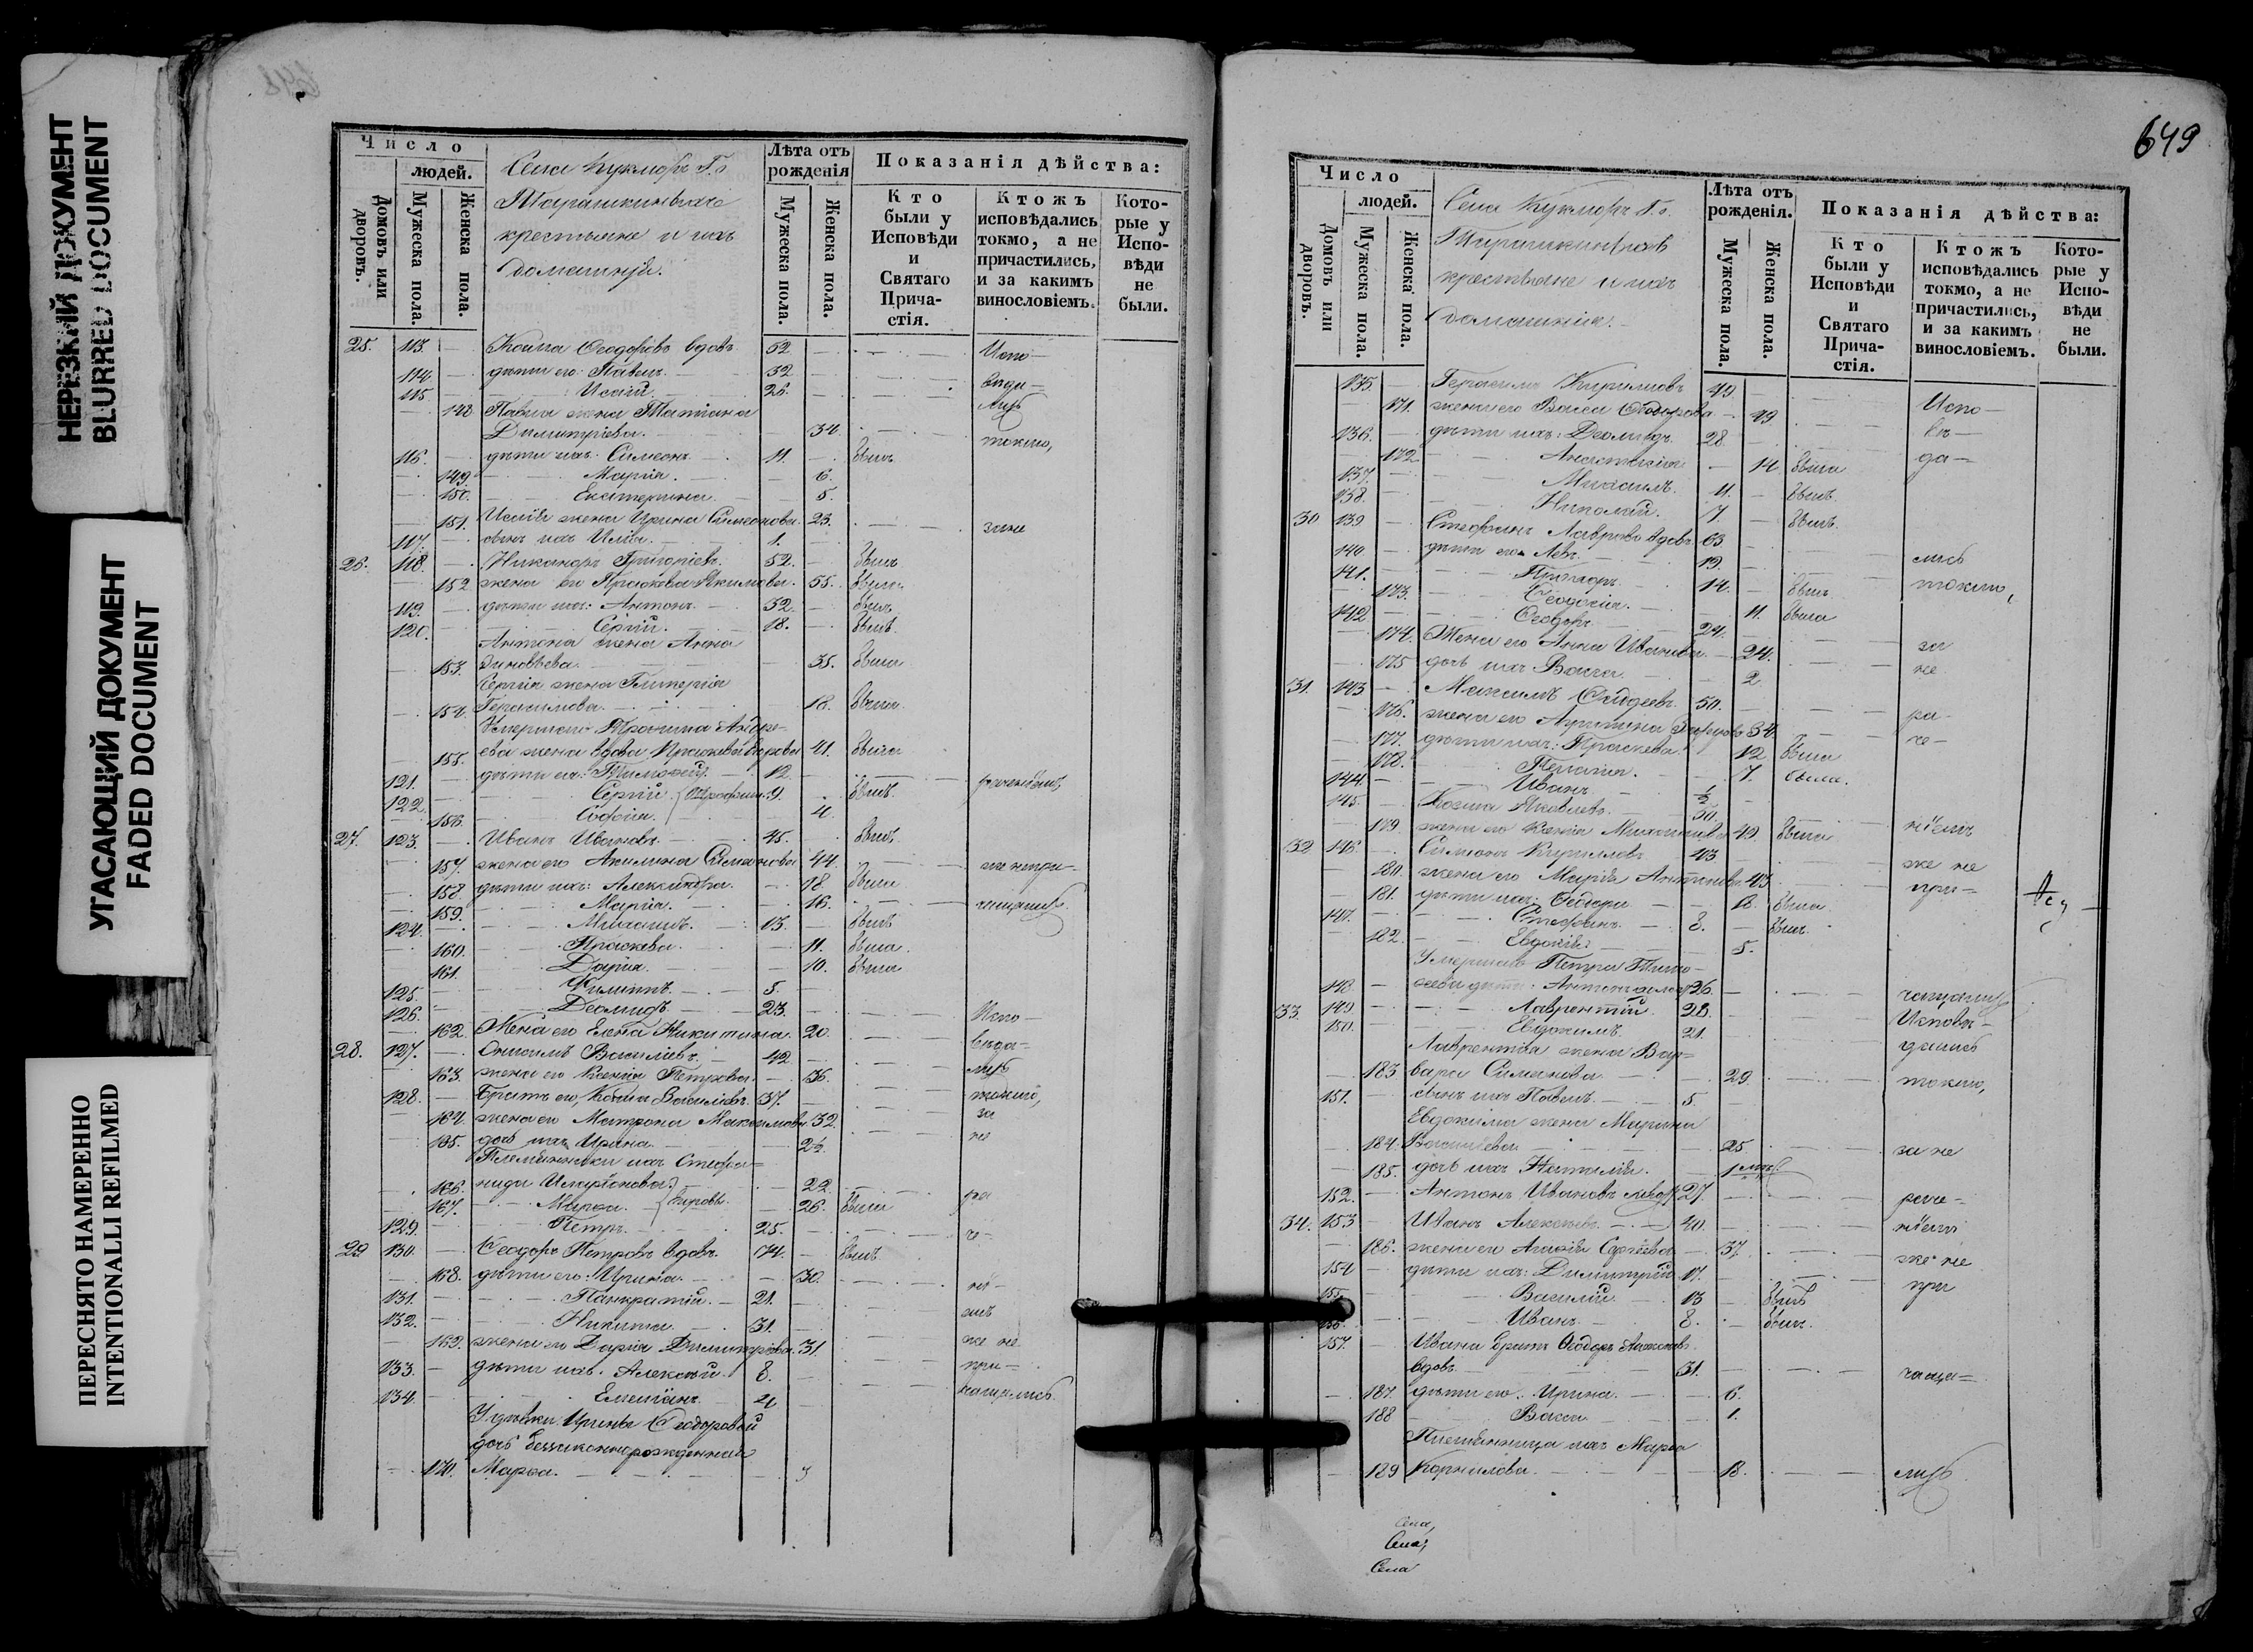 НЕРЕЗКИЙ ДОКУМЕНТ
BLURRED DOCUMENT
УГАСАЮЩИЙ ДОКУМЕНТ
FADED DOCUMENT
ПЕРЕСНЯТО НАМЕРЕННО
INTENTIONALLI REFILMED
Число
людей.
Домовъ или дворовъ.
Мужеска пола.
Женска пола.
Села Кукморъ Г.
крестьяне и ихъ
домашніи.
Лѣта отъ рожденія
Мужеска пола.
Женска пола.
Показанія дѣйства:
Кто были у Исповѣди и Святаго Причастія.
Ктожъ исповѣдались токмо, а не причастились, и за какимъ винословіемъ.
Которые у Исповѣди не были.
25. 113. Косма Ѳеодоровъ вдовъ 52 Испо-
114 дѣти его: Павелъ. 32
115 Исаій 26.
148 Павла жена Татіана
Димитріева. 34 токмо,
116. дѣти ихъ: Симеонъ 11. былъ
149. Марія. 6.
150. Екатерина. 5.
151. Исаія жена Ирина Симеонова. 23. зане
117. сынъ ихъ Илія. 1.
26. 118. Никаноръ Григоріевъ. 52. былъ
152 жена его Праскева Якимова. 55. была
119. дѣти ихъ: Антонъ. 32. былъ
120. Сергій. 18. былъ
Антона жена Анна
153. Зиновьева. 35. была
Сергія жена Гликерія
154. Герасимова. 18. была
155. жена вдова Праскева 41. была
121. дѣти ея: Тимофей 12.
122. Сергій 9. былъ
156. Софія. 4.
27. 123. Иванъ Ивановъ. 45. былъ
157. жена его Акилина Симеонова 44.
158 дѣти ихъ: Александра. 18. была
159. Марія. 16.
124. Михаилъ. 13. былъ
160. Праскева. 11. была
161. Дарія. 10. была
125. Филиппъ. 5.
126. Деомидъ 23. Испо-
162. Жена его Елена Никитина. 20.
28. 127. Онисимъ Василіевъ. 42
163. жена его Ксенія Петрова. 36.
128. Братъ его, Косма Василіевъ. 37. токмо,
164. жена его Матрона Максимова 32. за
165. дочь ихъ Ирина. 2½ не
Племянники ихъ Стефа-
166. нида 22
167. Марѳа. 26. была
129. Петръ. 25.
29 130. Ѳеодоръ Петровъ вдовъ 74. былъ
168. дѣти его: Ирина. 30.
131. Панкратій. 21.
132. Никита. 31.
169. жена его Дарія Димитріева. 31. же не
133. дѣти ихъ: Алексѣй. 8. при-
134. Емеліанъ. 4
У дѣвки Ирины Ѳеодоровой
дочь беззаконнорожденная
170. Марѳа. 3
649
Число
людей.
Домовъ или дворовъ.
Мужеска пола.
Женска пола.
Села Кукморъ Г.
крестьяне и ихъ
домашніи.
Лѣта отъ рожденія.
Мужеска пола.
Женска пола.
Показанія дѣйства:
Кто были у Исповѣди и Святаго Причастія.
Ктожъ исповѣдались токмо, а не причастились, и за какимъ винословіемъ.
Которые у Исповѣди не были.
135. Герасимъ Кириловъ 49. Испо-
171. жена его Васса Ѳеодорова 49. вѣ-
136. дѣти ихъ: Деомидъ 28 да-
172 Анастасія 14. была
137. Михаилъ. 11. былъ
138. Николай. 7. былъ
30 139 Стефанъ Лавровъ вдовъ 63
140 дѣти его: Левъ. 19. лись
141. Прохоръ. 14. былъ токмо,
173. Ѳеодосія. 11. была
142 Ѳеодоръ. 24.
174. Жена его Анна Иванова. 24. за
175 дочь ихъ Васса. 2 не
31. 143 Максимъ 50.
176. жена его 34. ра-
177. дѣти ихъ: Праскева. 12 была че-
178. Пелагія. 7. была.
144. Иванъ. ½
145. Косма Яковлевъ. 50.
179. жена его Ксенія Михаилова 49 была ніемъ
32 146. Симеонъ Кирилловъ 43 же не
180. жена его Марія Антонова. 43. при-
181. дѣти ихъ: 18. была
147. Стефанъ. 8. былъ
182. Евдокія. 5.
Умершаго Петра Тимо-
148. феева дѣти: Антонъ 26.
33. 149. Лаврентій. 28. Исповѣ-
150. Евдокимъ. 21. дались
Лаврентія жена Вар-
183. вара Симеонова. 29. токмо,
151. сынъ ихъ Павелъ. 5.
Евдокима жена Марина
184. Василіева 25 за не
185. дочь ихъ Наталія. 1
152. Антонъ Ивановъ 27. раче-
34. 153 Иванъ Алексѣевъ. 40. ніемъ
186. жена его Сергѣева 37. же не
154 дѣти ихъ: Димитрій 17. при
155. Василій. 13 былъ
156. Иванъ. 8. былъ
157. Ивана братъ Ѳеодоръ
вдовъ. 31.
187. дѣти его: Ирина. 6.
188 Васса. 1.
Племянница ихъ Марѳа
189 Корнилова. 18. лись
Села,
Села,
Села